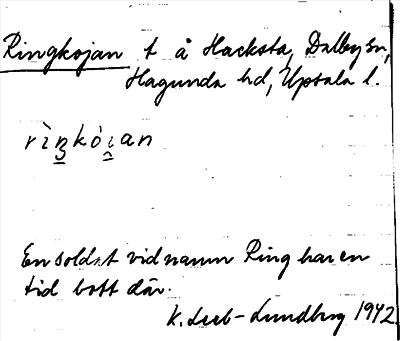 Ringkojan t å Hacksta, Dalby sn,
Hagunda hd, Uppsala l.
rìŋkò i̯an
En soldat vid namn Ring har en
tid bott där.
K. Leeb-Lundberg 1942